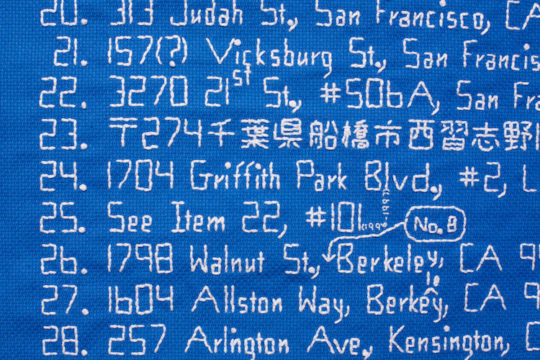 20. 313 Judah St., San Francisco, CA
21. 157(?) Vicksburg St., San Francis
22. 3270 21st St., #506A, San Fra
23. 〒274千葉県船橋市西習志野
24. 1704 Griffith Park Blvd., #2, L
25. See Item 22, #101
No. 8
26. 1798 Walnut St., Berkeley, CA 9
27. 1604 Allston Way, Berkley, CA 9
28. 257 Arlington Ave., Kensington,